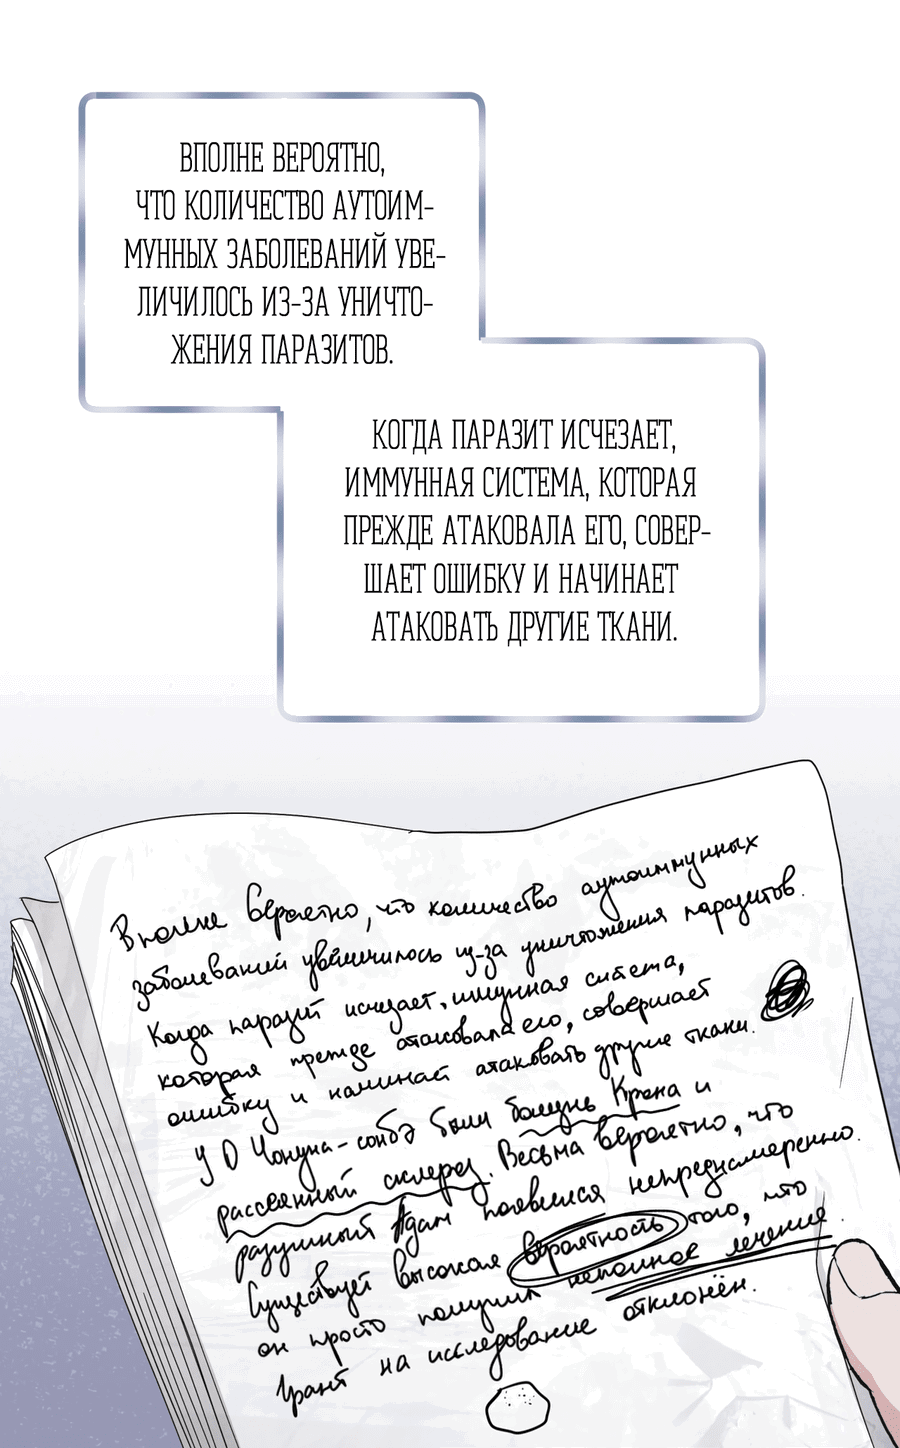 ВПОЛНЕ ВЕРОЯТНО,
ЧТО КОЛИЧЕСТВО АУТОИМ-
МУННЫХ ЗАБОЛЕВАНИЙ УВЕ-
ЛИЧИЛОСЬ ИЗ-ЗА УНИЧТО-
ЖЕНИЯ ПАРАЗИТОВ.
КОГДА ПАРАЗИТ ИСЧЕЗАЕТ,
ИММУННАЯ СИСТЕМА, КОТОРАЯ
ПРЕЖДЕ АТАКОВАЛА ЕГО, СОВЕР-
ШАЕТ ОШИБКУ И НАЧИНАЕТ
АТАКОВАТЬ ДРУГИЕ ТКАНИ.
Вполне вероятно, что количество аутоиммунных
заболеваний увеличилось из-за уничтожения паразитов.
Когда паразит исчезает, иммунная система,
которая прежде атаковала его, совершает
ошибку и начинает атаковать другие ткани.
У О Чонуна-сонбэ были болезнь Крона и
рассеянный склероз. Весьма вероятно, что
разумный Адам появился непреднамеренно.
Существует высокая вероятность того, что
он просто получил неполное лечение.
Грант на исследование отклонён.